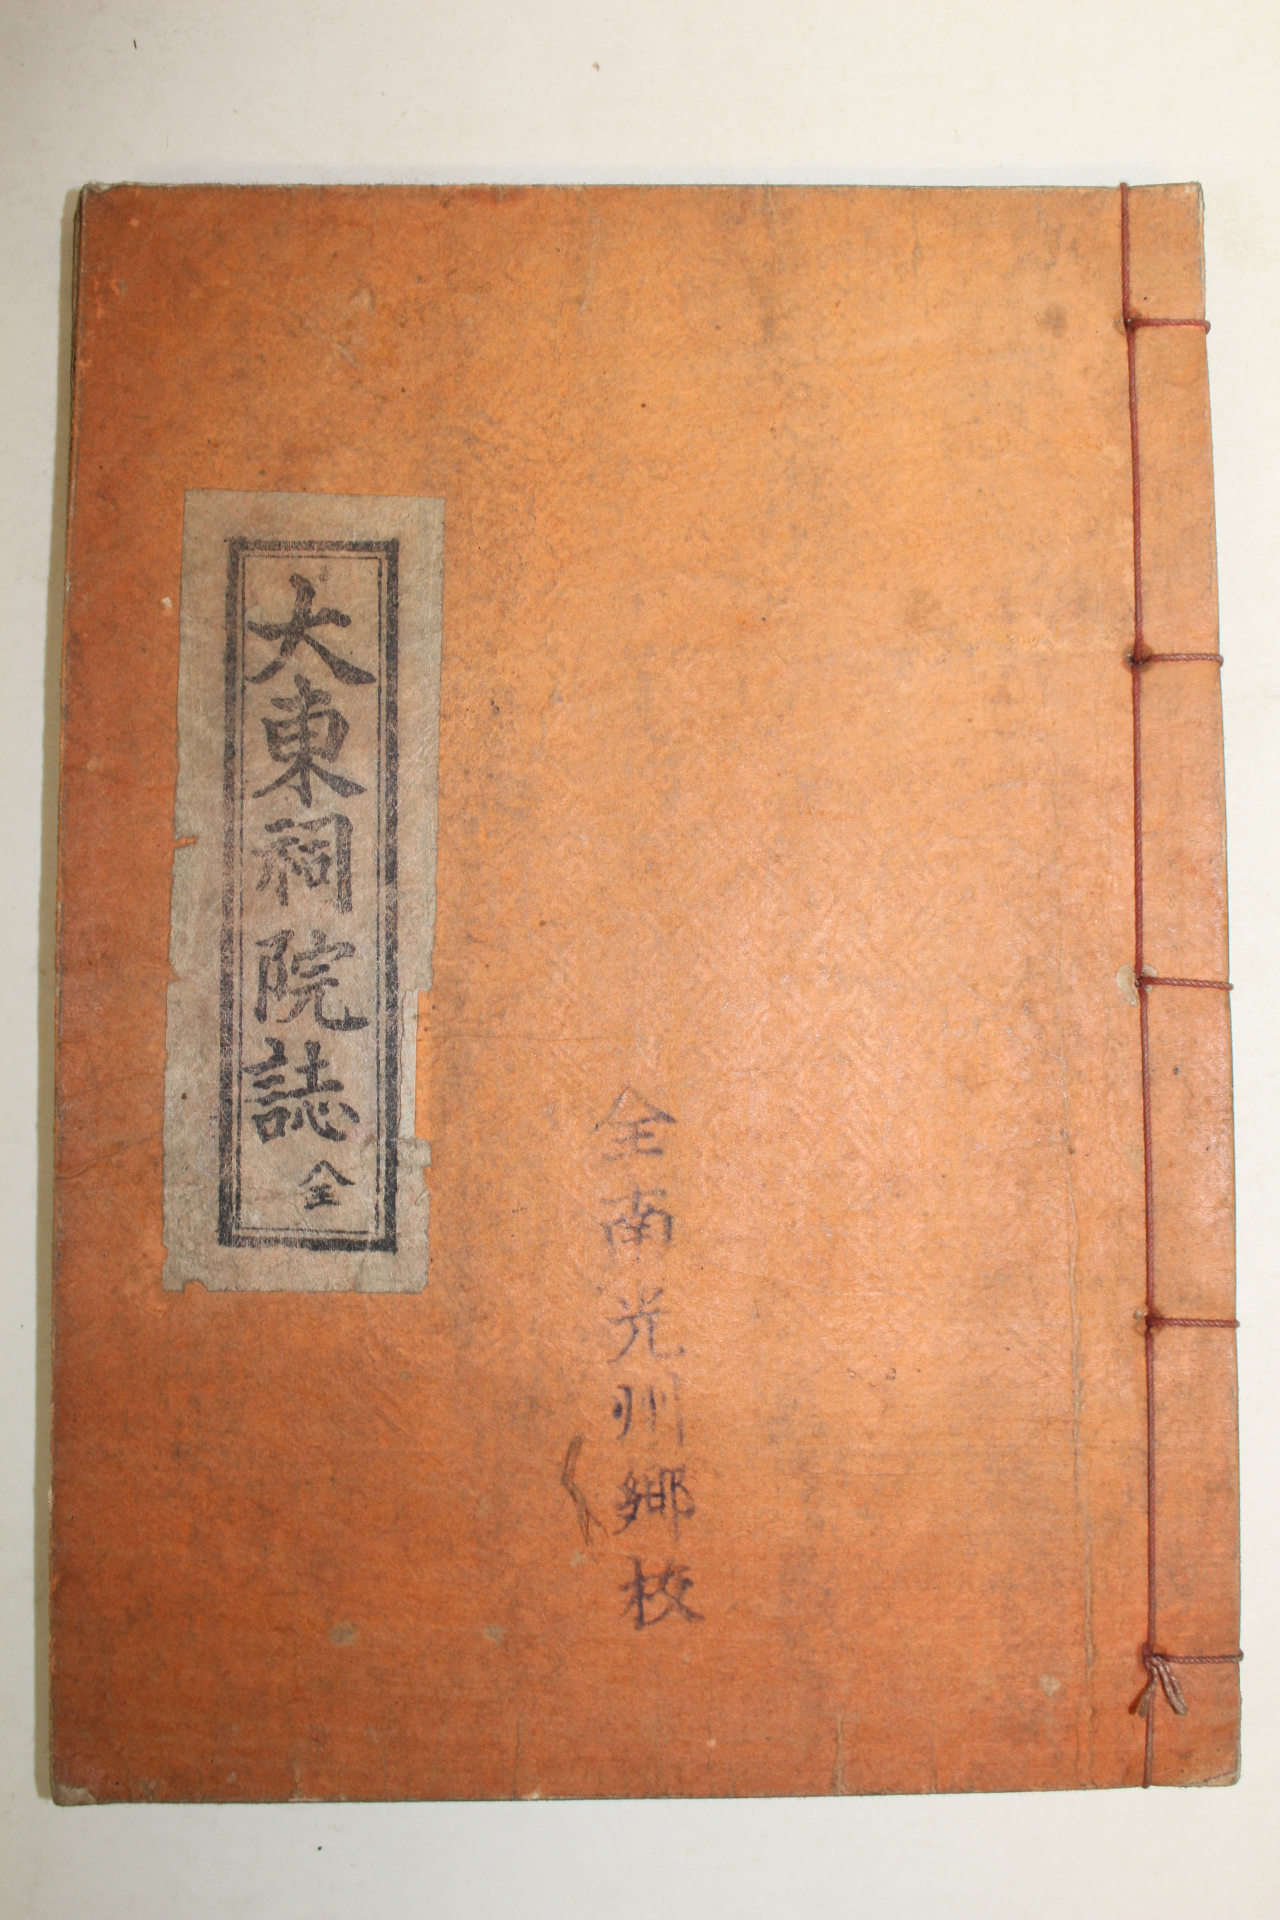 全南光州鄉校
大東祠院誌 全